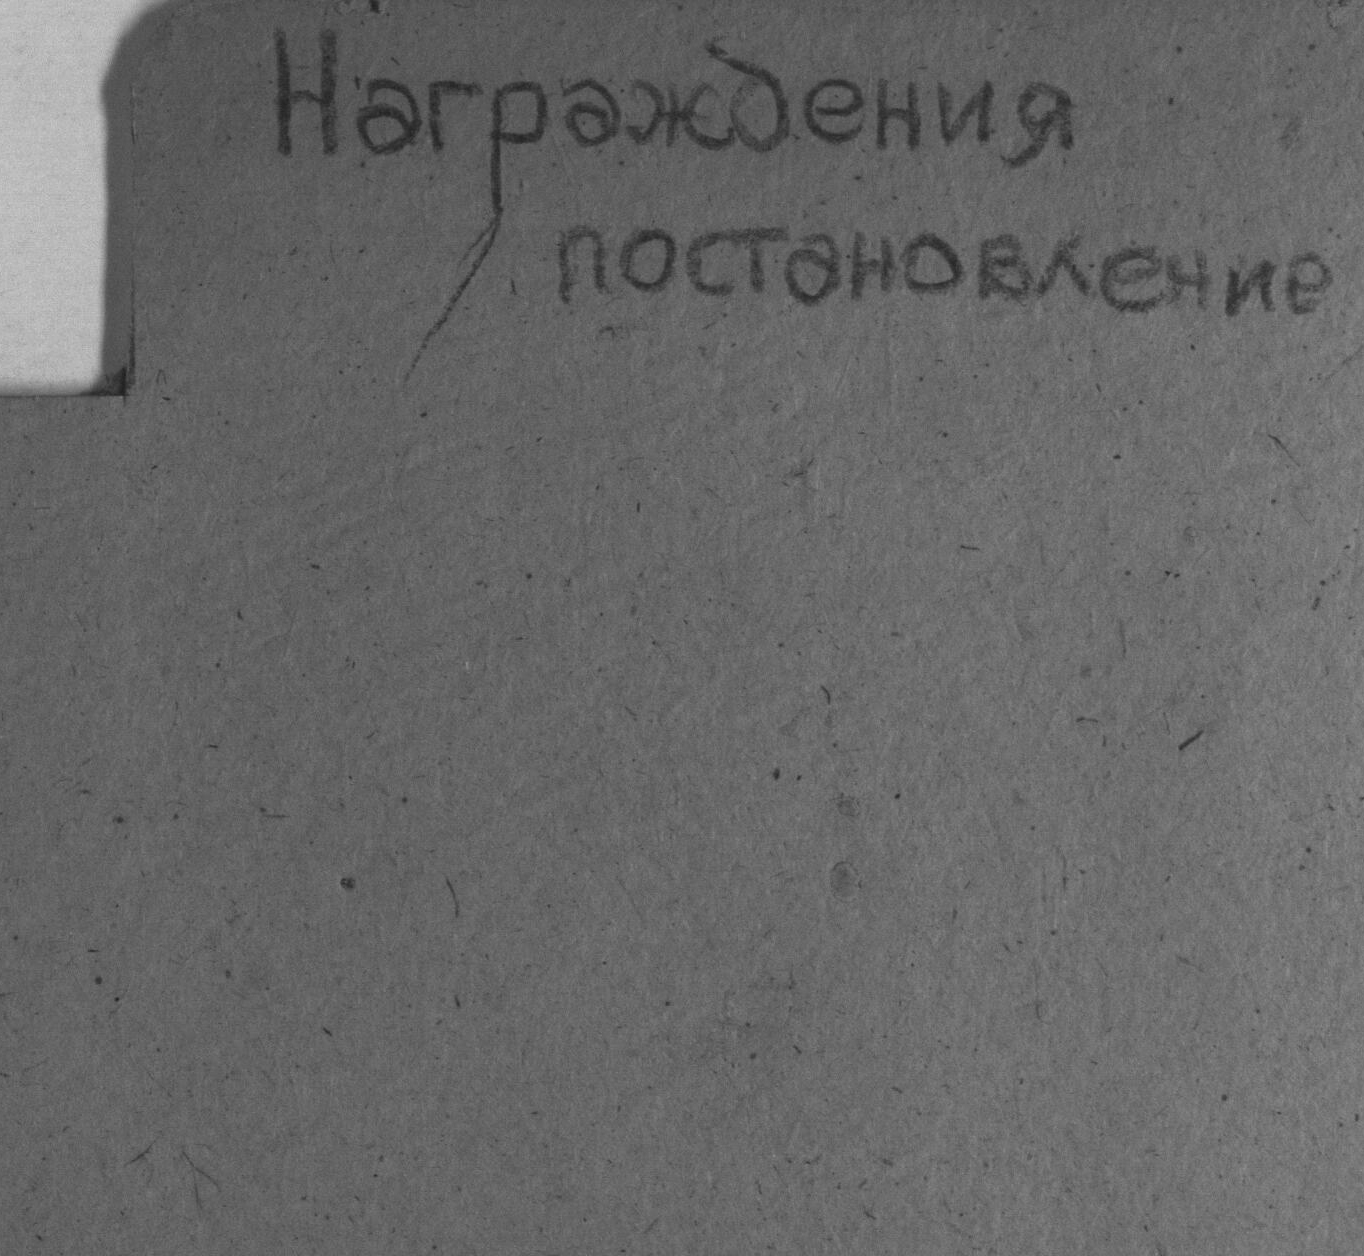 Награждения
постановление